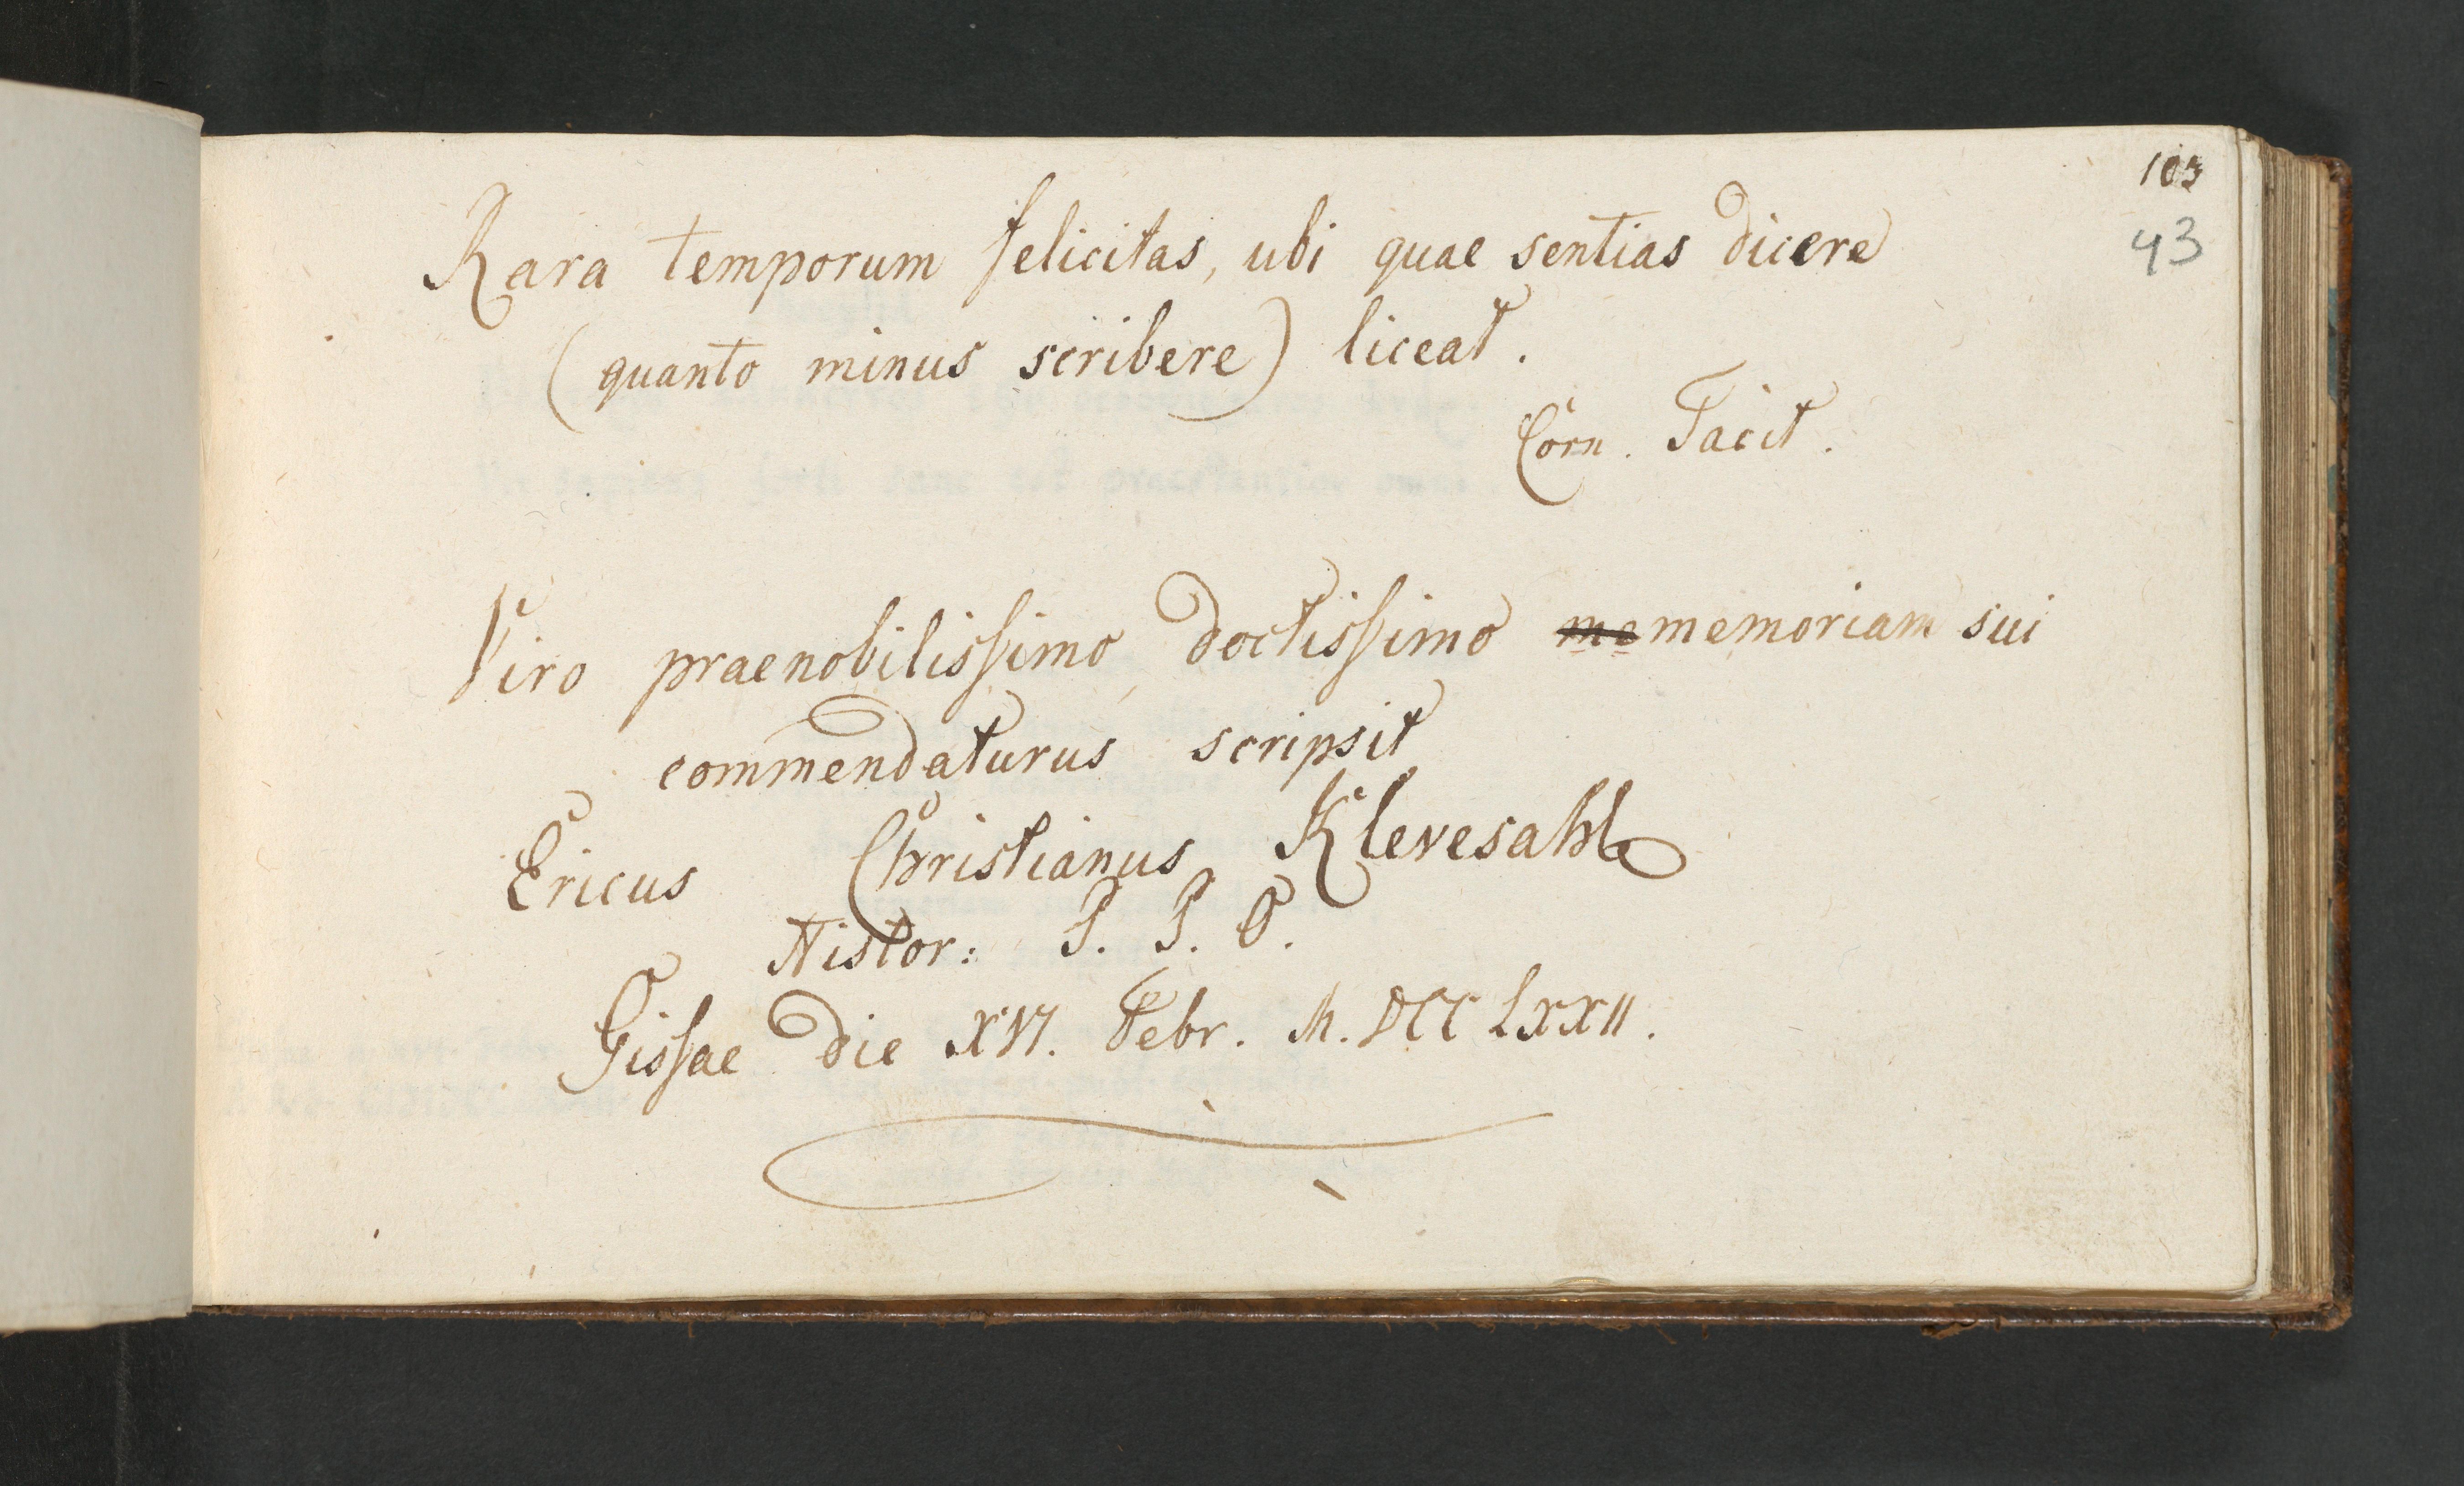 103
43
Rara temporum felicitas, ubi quae sentias dicere
(quanto minus scribere) liceat.
Corn. Tacit.
Viro praenobilissimo, doctissimo me memoriam sui
commendaturus scripsit
Ericus Christianus Klevesahl
Histor: P. P. O.
Gissae die XVI. Febr. M.DCC LXXII.